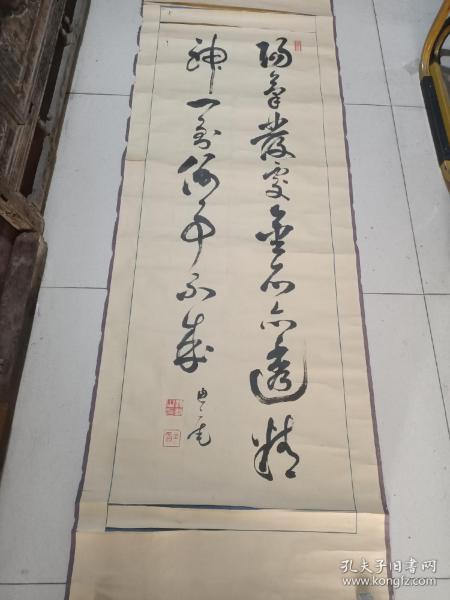 陽氣發處金石亦透精
神一到何事不成
孔夫子旧书网
www.kongfz.com